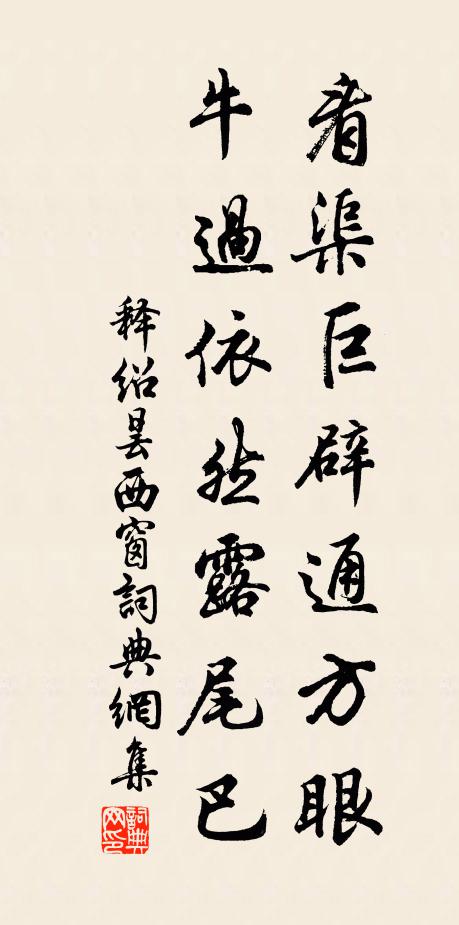 看渠巨辟通方眼
牛過依然露尾巴
释绍昙西窗詞典網集
詞典網印